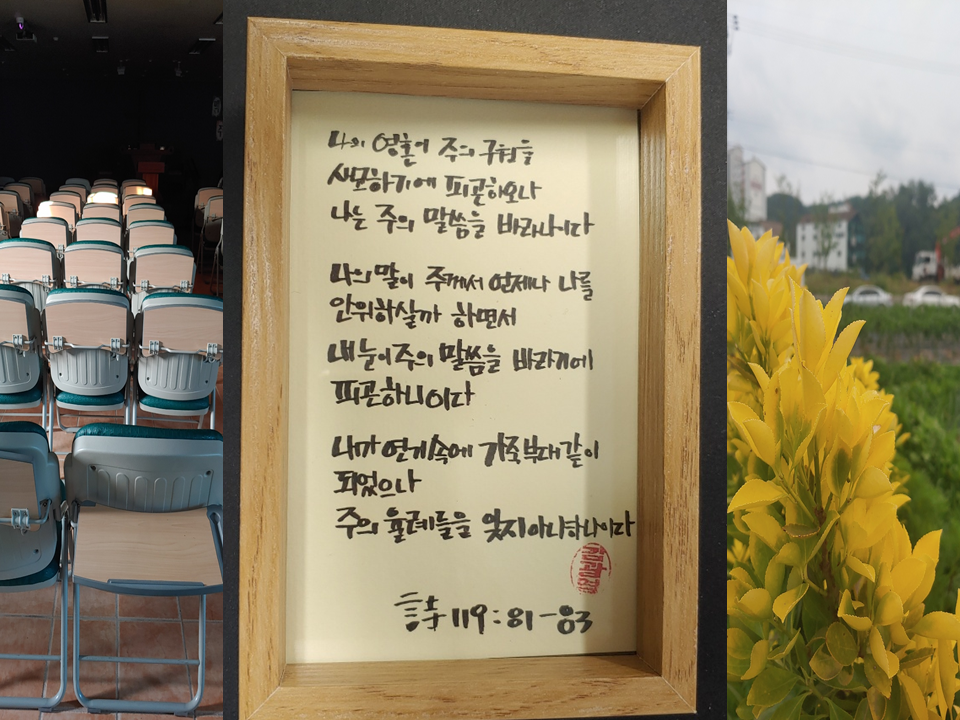 나의 영혼이 주의 구원을
사모하기에 피곤하오나
나는 주의 말씀을 바라나이다
나의 말이 주께서 언제나 나를
안위하실까 하면서
내 눈이 주의 말씀을 바라기에
피곤하니이다
내가 연기속에 가죽부대같이
되었으나
주의 율례들을 잊지아니하나이다
詩 119:81-83